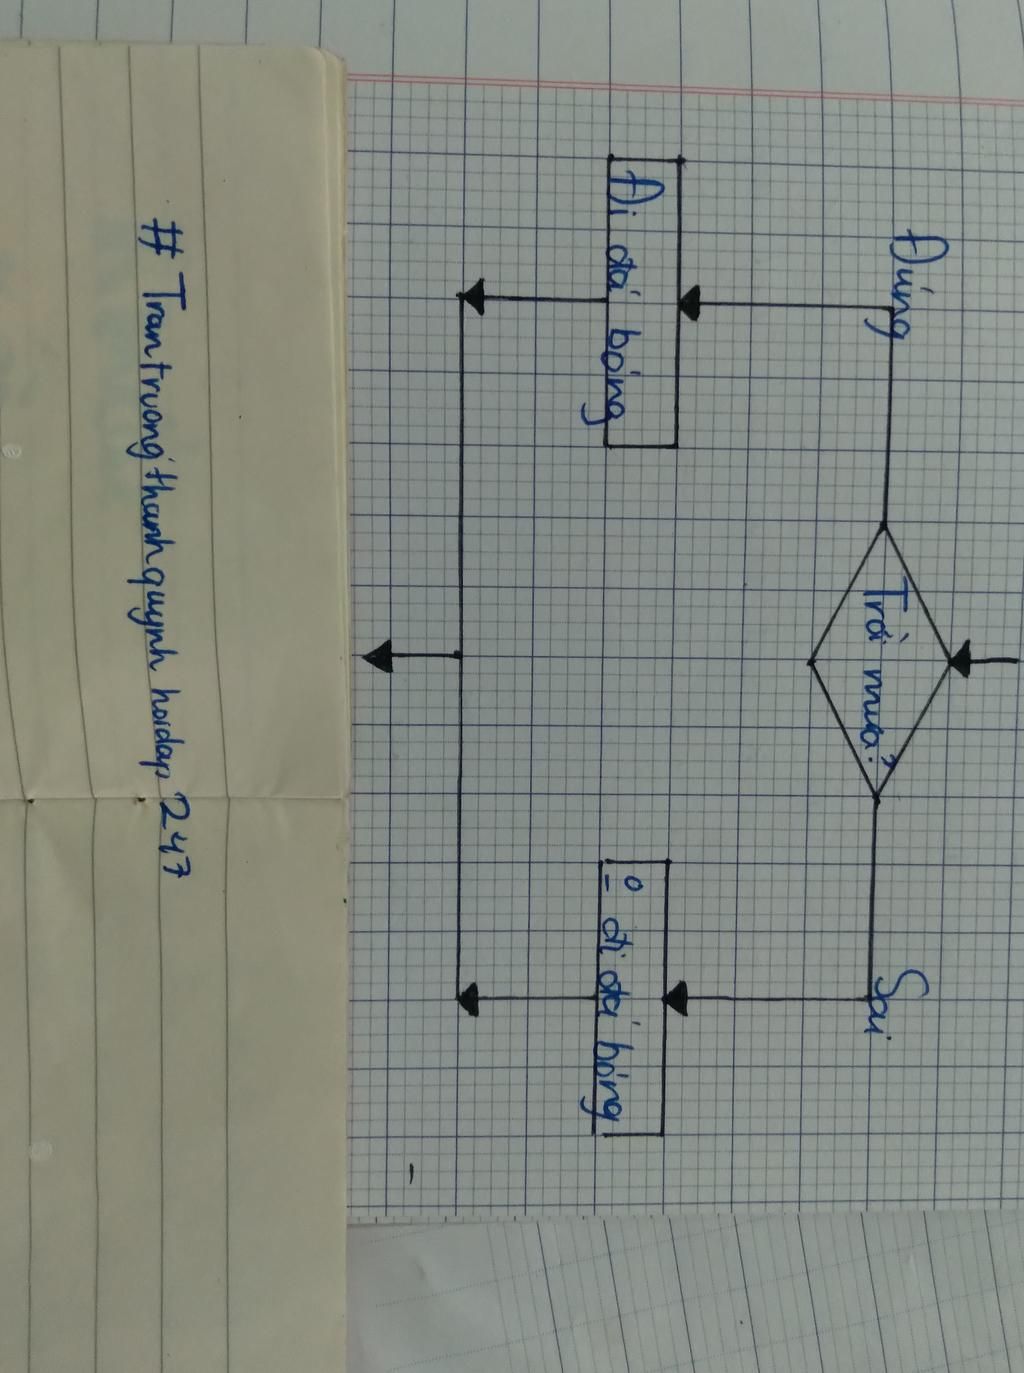 Trời mưa?
Đúng
Sai
Đi đá bóng
đi đá bóng
# Trantruongthanhquynh hoidap 247